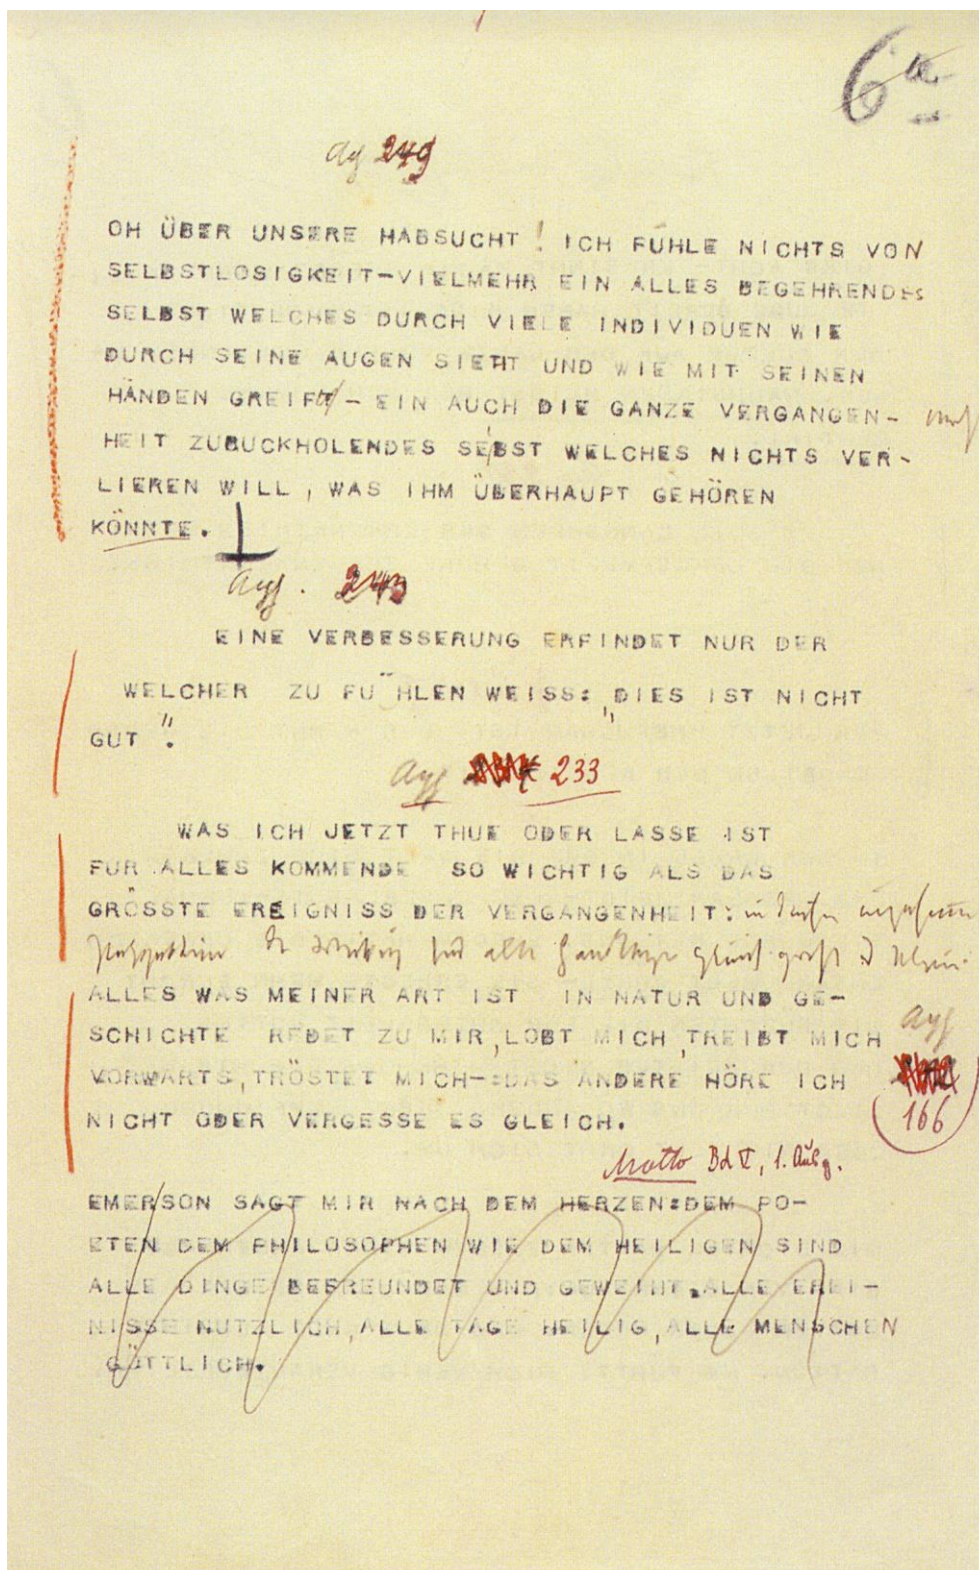 6a
249
OH ÜBER UNSERE HABSUCHT! ICH FÜHLE NICHTS VON
SELBSTLOSIGKEIT-VIELMEHR EIN ALLES BEGEHRENDES
SELBST WELCHES DURCH VIELE INDIVIDUEN WIE
DURCH SEINE AUGEN SIEHT UND WIE MIT SEINEN
HÄNDEN GREIFT - EIN AUCH DIE GANZE VERGANGEN-
HEIT ZURUCKHOLENDES SELBST WELCHES NICHTS VER-
LIEREN WILL, WAS IHM ÜBERHAUPT GEHÖREN
KÖNNTE.
243
EINE VERBESSERUNG ERFINDET NUR DER
WELCHER ZU FÜHLEN WEISS: „DIES IST NICHT
GUT".
233
WAS ICH JETZT THUE ODER LASSE IST
FUR ALLES KOMMENDE SO WICHTIG ALS DAS
GRÖSSTE EREIGNISS DER VERGANGENHEIT: in dieser
Perspektive der Wirkung sind alle Handlungen gleich groß und klein.
ALLES WAS MEINER ART IST IN NATUR UND GE-
SCHICHTE REDET ZU MIR, LOBT MICH, TREIBT MICH
VORWARTS, TRÖSTET MICH-:DAS ANDERE HÖRE ICH
166
NICHT ODER VERGESSE ES GLEICH.
Motto Bd V, 1. Ausg.
EMERSON SAGT MIR NACH DEM HERZEN:DEM PO-
ETEN DEM PHILOSOPHEN WIE DEM HEILIGEN SIND
ALLE DINGE BEFREUNDET UND GEWEIHT. ALLE EREI-
NISSE NUTZLICH, ALLE TAGE HEILIG, ALLE MENSCHEN
GÖTTLICH.